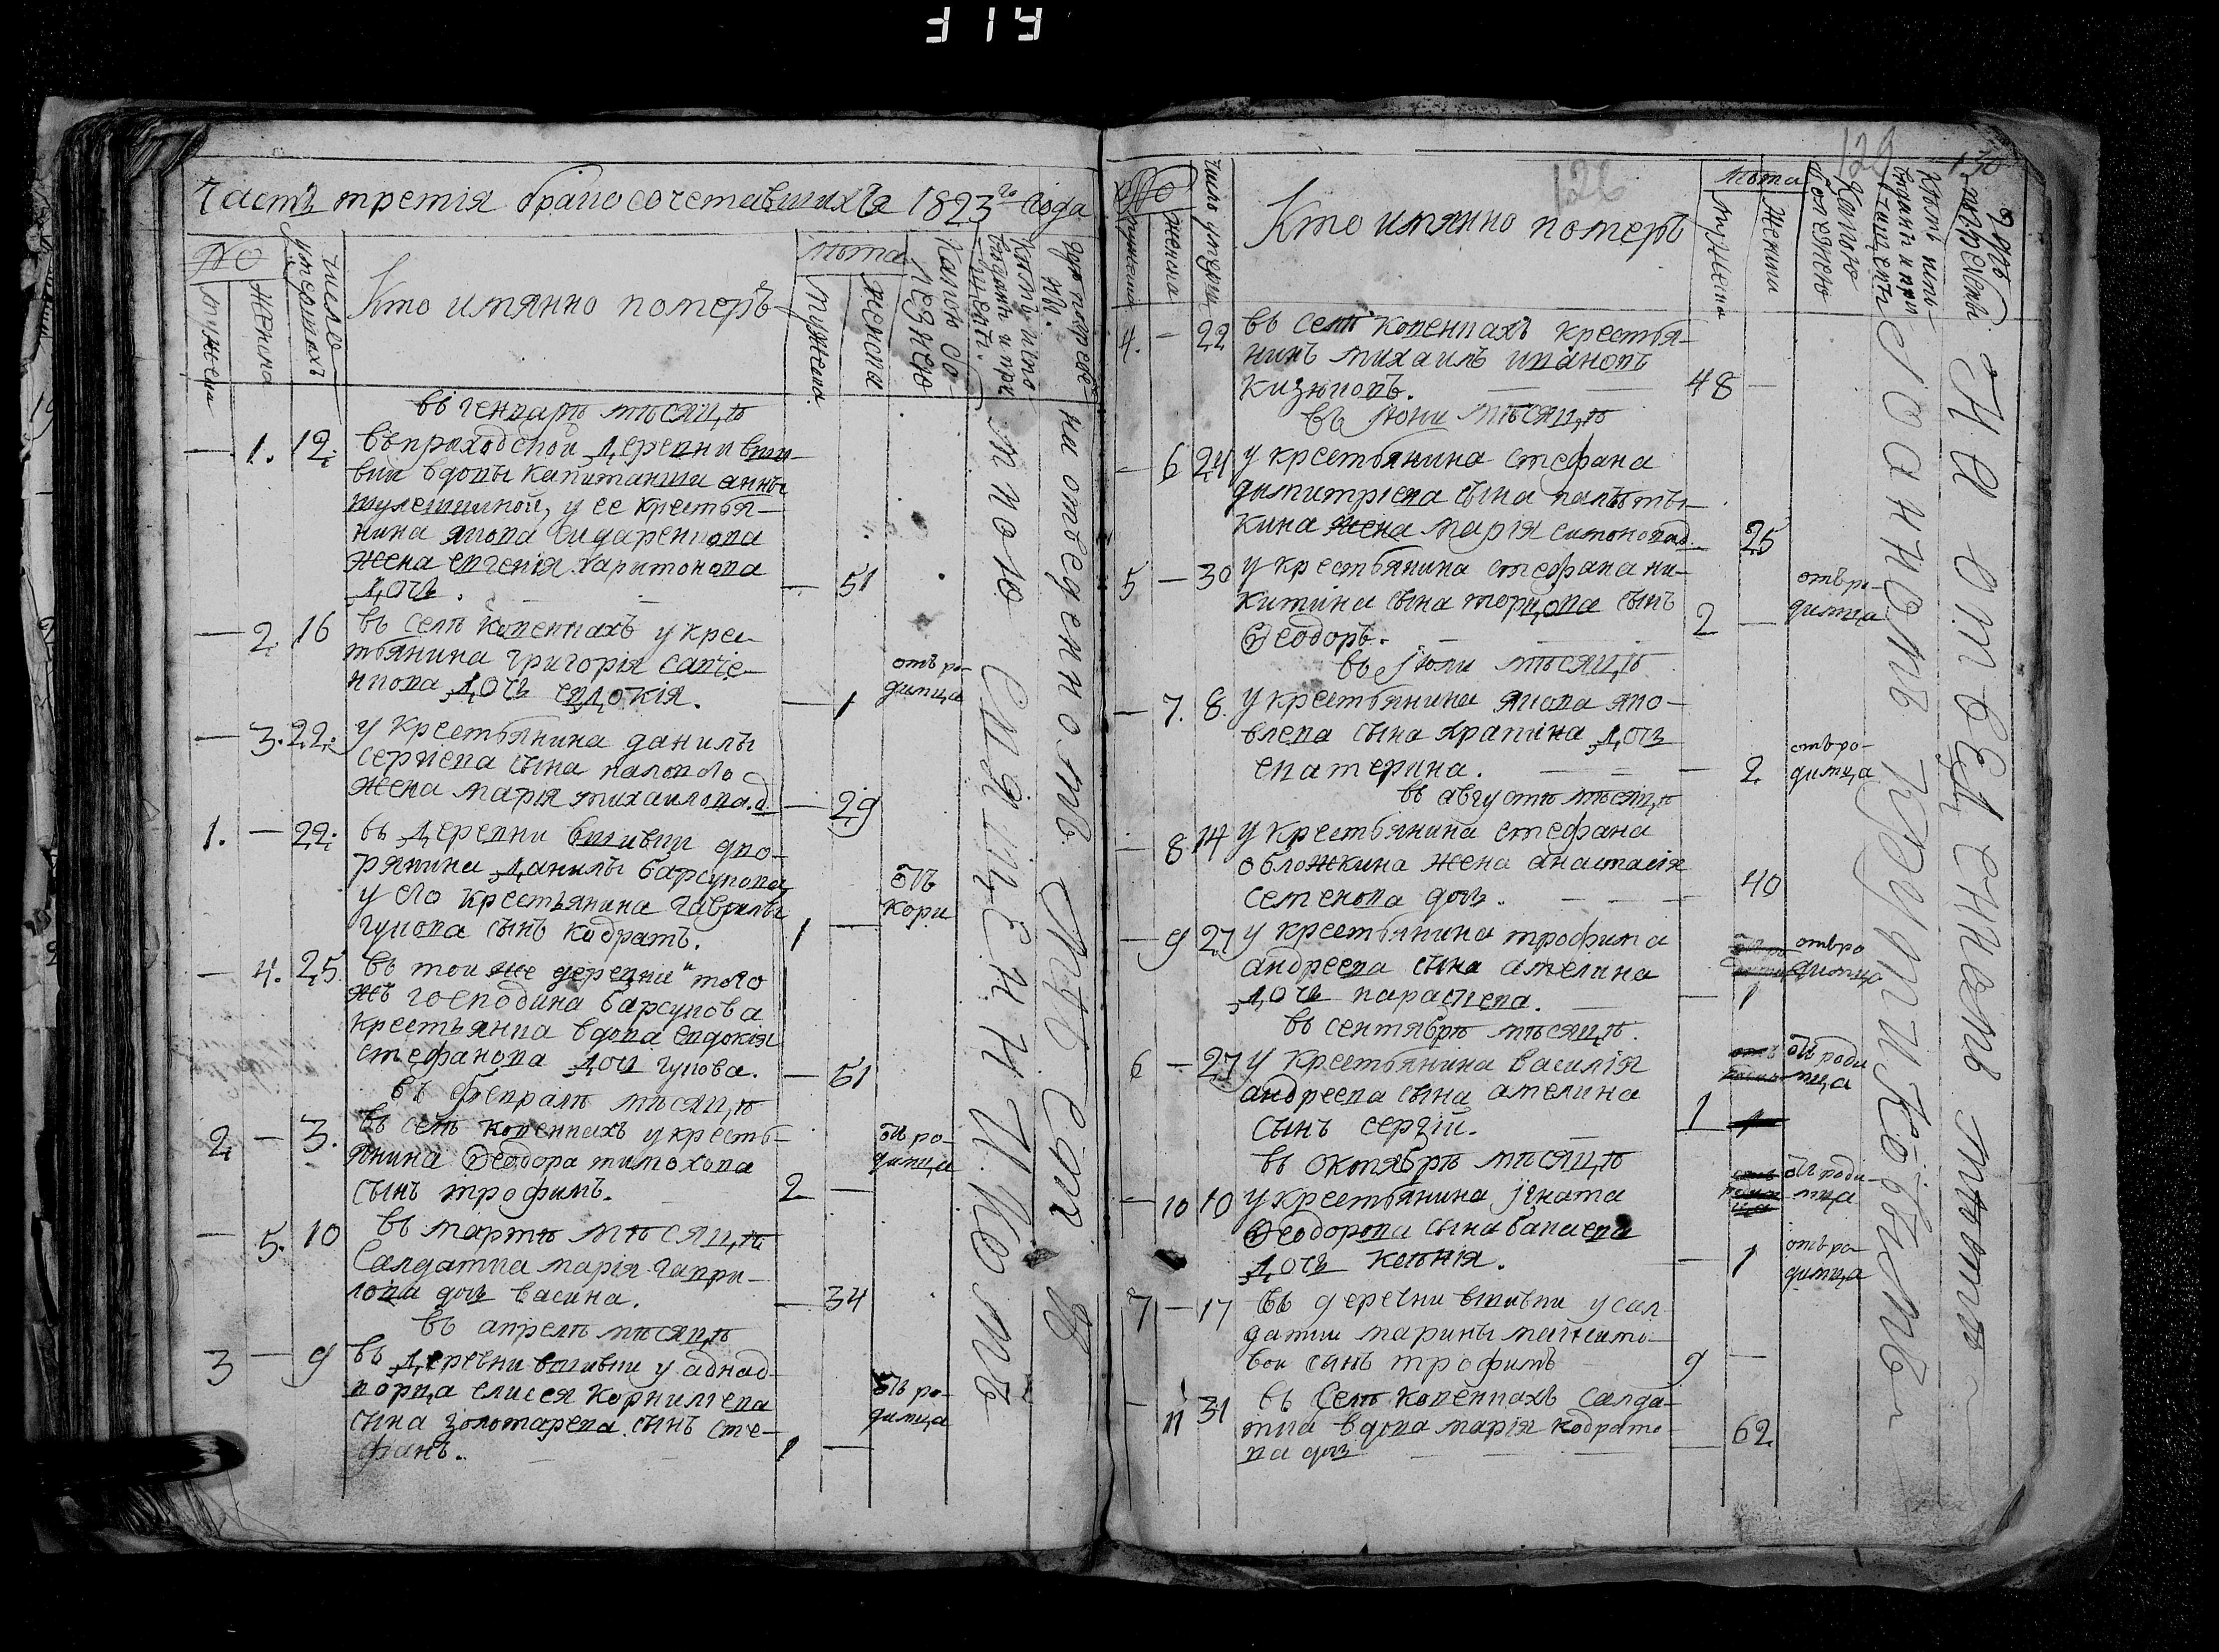 Часть третія бракосочетавшихся 1823го года
№
мужеска
женска
число умершихъ
Кто имянно померъ
лѣта
мужеска
женска
Какою болезнею
въ генварѣ мѣсяцѣ
— 1. 12. въ приходской деревни вши-
вки вдовы капитанши анны
шулешкиной, у ее крестья-
нина якова сидаренкова
жена евгенія харитонова
дочь. — — — 51
— 2. 16 въ селѣ копенкахъ у крес-
тьянина григорія савче-
нкова дочь евдокія. — 1 отъ ро-
димца
— 3. 22. у крестьянина данилы
сергіева сына
жена марія михаилова.д. — 29
1. — 22. въ деревни вшивки дво-
рянина данилы барсукова
у его крестьянина гаврилы
гукова сынъ кодратъ. 1 — отъ
кори
— 4. 25. въ той же деревни и того
жъ господина барсукова
крестьянка вдова евдокія
стефанова дочь гукова. — 61
въ февралѣ мѣсяцѣ
2 — 3. въ селѣ копенкахъ у кресть-
янина Ѳеодора тимохова
сынъ трофимъ. — 2 — отъ ро-
димца
въ мартѣ мѣсяцѣ
— 5. 10 Салдатка марія гаври-
лова дочь васина. — 34
въ апрелѣ мѣсяцѣ
3 — 9 въ деревни вшивки у аднад-
ворца елисея корниліева
сына золотарева сынъ сте-
фанъ. — — 1 — отъ ро-
димца
священникомъ
на отведенномъ
126
129
130
№
мужеска
женска
число умерш
Кто имянно померъ
лѣта
мужеска
женска
Какою
болезнею
гдѣ погребены
4. — 22 въ селѣ копенкахъ крестья-
нинъ михаилъ ивановъ
— — 48 —
въ июни мѣсяцѣ
— 6 24 у крестьянина стефана
димитріева сына
кина жена марія симонова д. 25
5 — 30 у крестьянина стефана ни-
китина сына сынъ
Ѳеодоръ. — — — 2 — отъ ро-
димца
въ июли мѣсяцѣ
— 7. 8. у крестьянина якова яко-
влева сына храпина дочь
екатерина. — — — 2 отъ ро-
димца
въ августѣ мѣсяцѣ
— 8 14 у крестьянина стефана
обложкина жена анастасія
семенова дочь. — — — 40
— 9 27 у крестьянина трофима
андреева сына амелина
дочь параскева. — — 1 отъ ро
димца
въ сентябрѣ мѣсяцѣ.
6 — 27 у крестьянина василія
андреева сына амелина
сынъ сергій. — 1 отъ роди
мца
въ октябрѣ мѣсяцѣ
— 10 10 у крестьянина игната
Ѳеодорова сына
дочь ксенія. — 1 отъ роди-
мца
отъ ро
димца
7 — 17 въ деревни вшивки у сал-
датки марины
вои сынъ трофимъ 9 —
— 11 31 въ селѣ копенкахъ салда-
тка вдова марія кодрато-
ва дочь — — — 62
на отведенномъ мѣстѣ
Іоанномъ